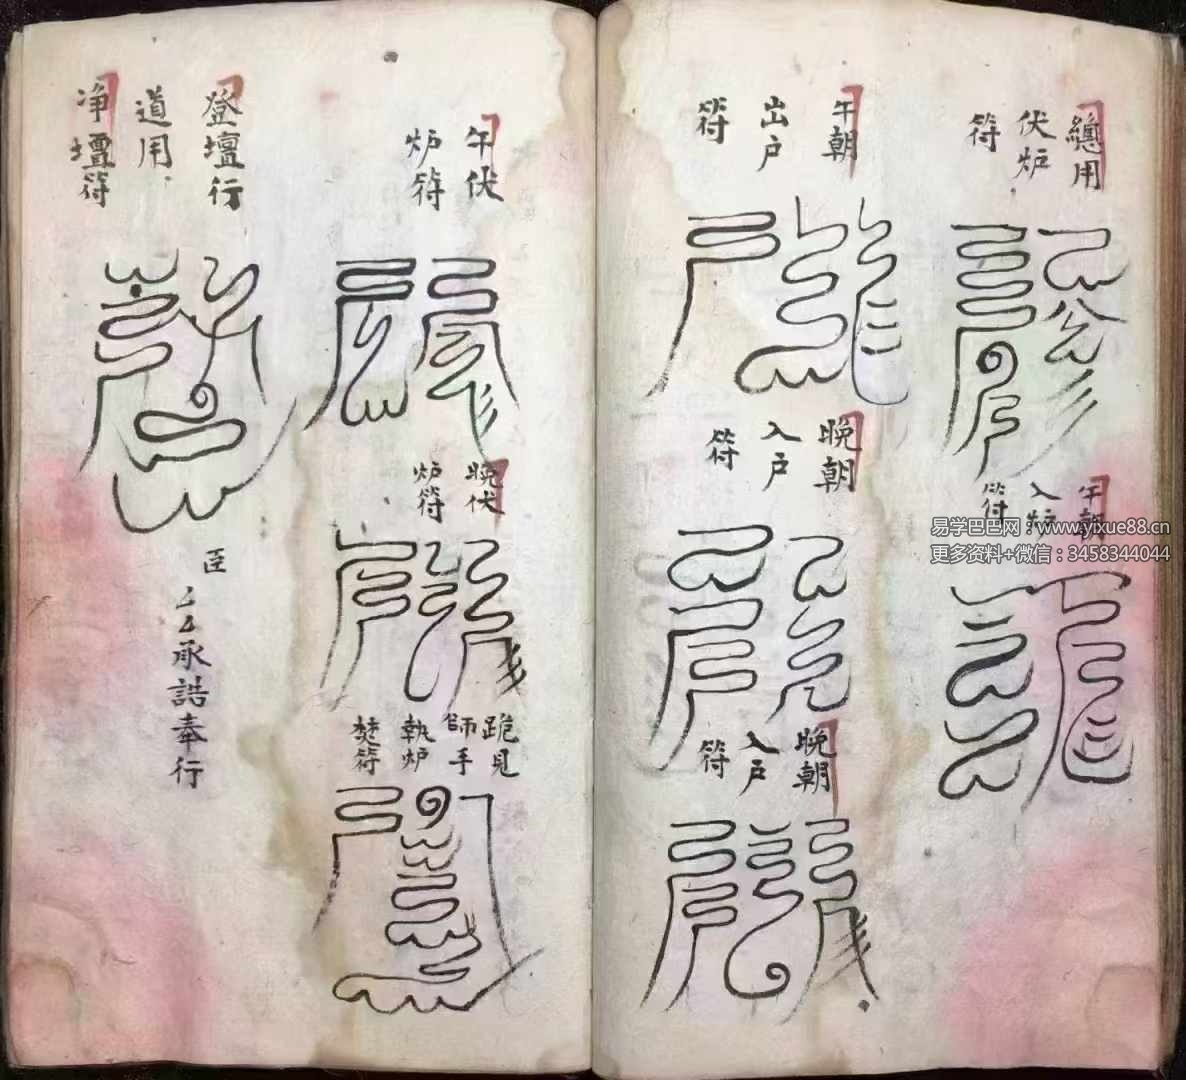 總用
伏炉
符
午朝
入户
符
午朝
出户
符
晚朝
入户
符
晚朝
入户
符
午伏
炉符
晚伏
炉符
跪見
師手
執炉
焚符
登壇行
道用
净壇符
臣
承誥奉行
易学巴巴网:www.yixue88.cn
更多资料+微信:3458344044